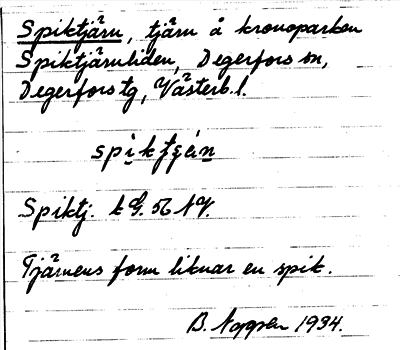 Spiktjärn, tjärn å kronoparken
Spiktjärnliden, Degerfors sn,
Degerfors tg, Västerb. l.
Spiktj. k G. 56 NV.
Tjärnens form liknar en spik.
B. 1934.